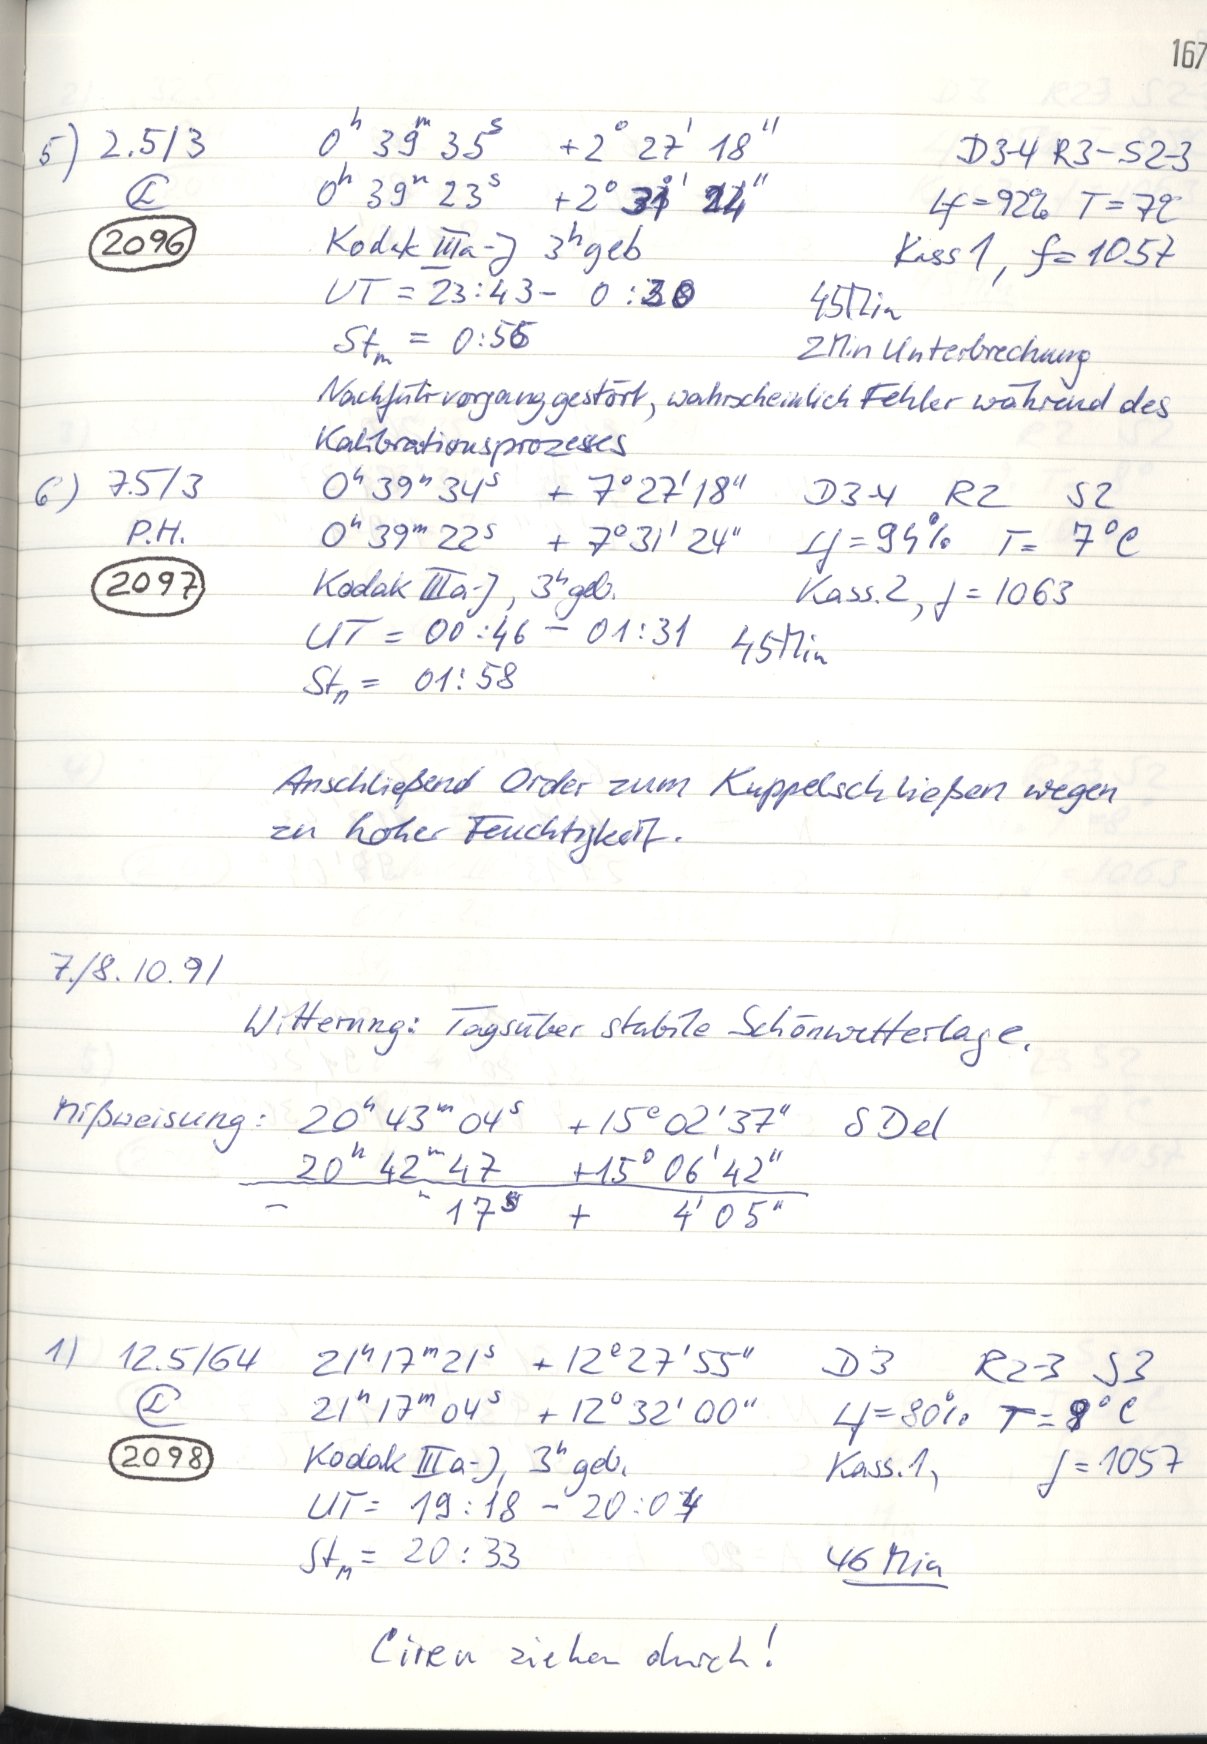 167
5) 2.5/3 0h 39m 35s +2° 27' 18" D3-4 R3-S2-3
0h 39m 23s +2° 31' 24" Lf=92% T=7°C
2096 Kodak IIIa-J 3h geb Kass 1, f=1057
UT = 23:43 - 0:30 45 Min
Stm = 0:56 2 Min Unterbrechung
Nachführvorgang gestört, wahrscheinlich Fehler während des
Kalibrationsprozesses
6) 7.5/3 0h 39m 34s + 7° 27' 18" D3-4 R2 S2
P.H. 0h 39m 22s + 7° 31' 24" Lf=94% T= 7°C
2097 Kodak IIIa-J, 3h geb. Kass. 2, f = 1063
UT = 00:46 - 01:31 45 Min
Stm = 01:58
Anschließend Order zum Kuppelschließen wegen
zu hoher Feuchtigkeit.
7./8.10.91
Witterung: Tagsüber stabile Schönwetterlage.
Mißweisung: 20h 43m 04s +15° 02' 37" δ Del
20h 42m 47 +15° 06' 42"
- 17s + 4' 05"
1) 12.5/64 21h 17m 21s +12° 27' 55" D3 R2-3 S3
21h 17m 04s +12° 32' 00" Lf=80% T=8°C
2098 Kodak IIIa-J, 3h geb. Kass. 1, f=1057
UT = 19:18 - 20:04
Stm = 20:33 46 Min
Ciren ziehen durch!